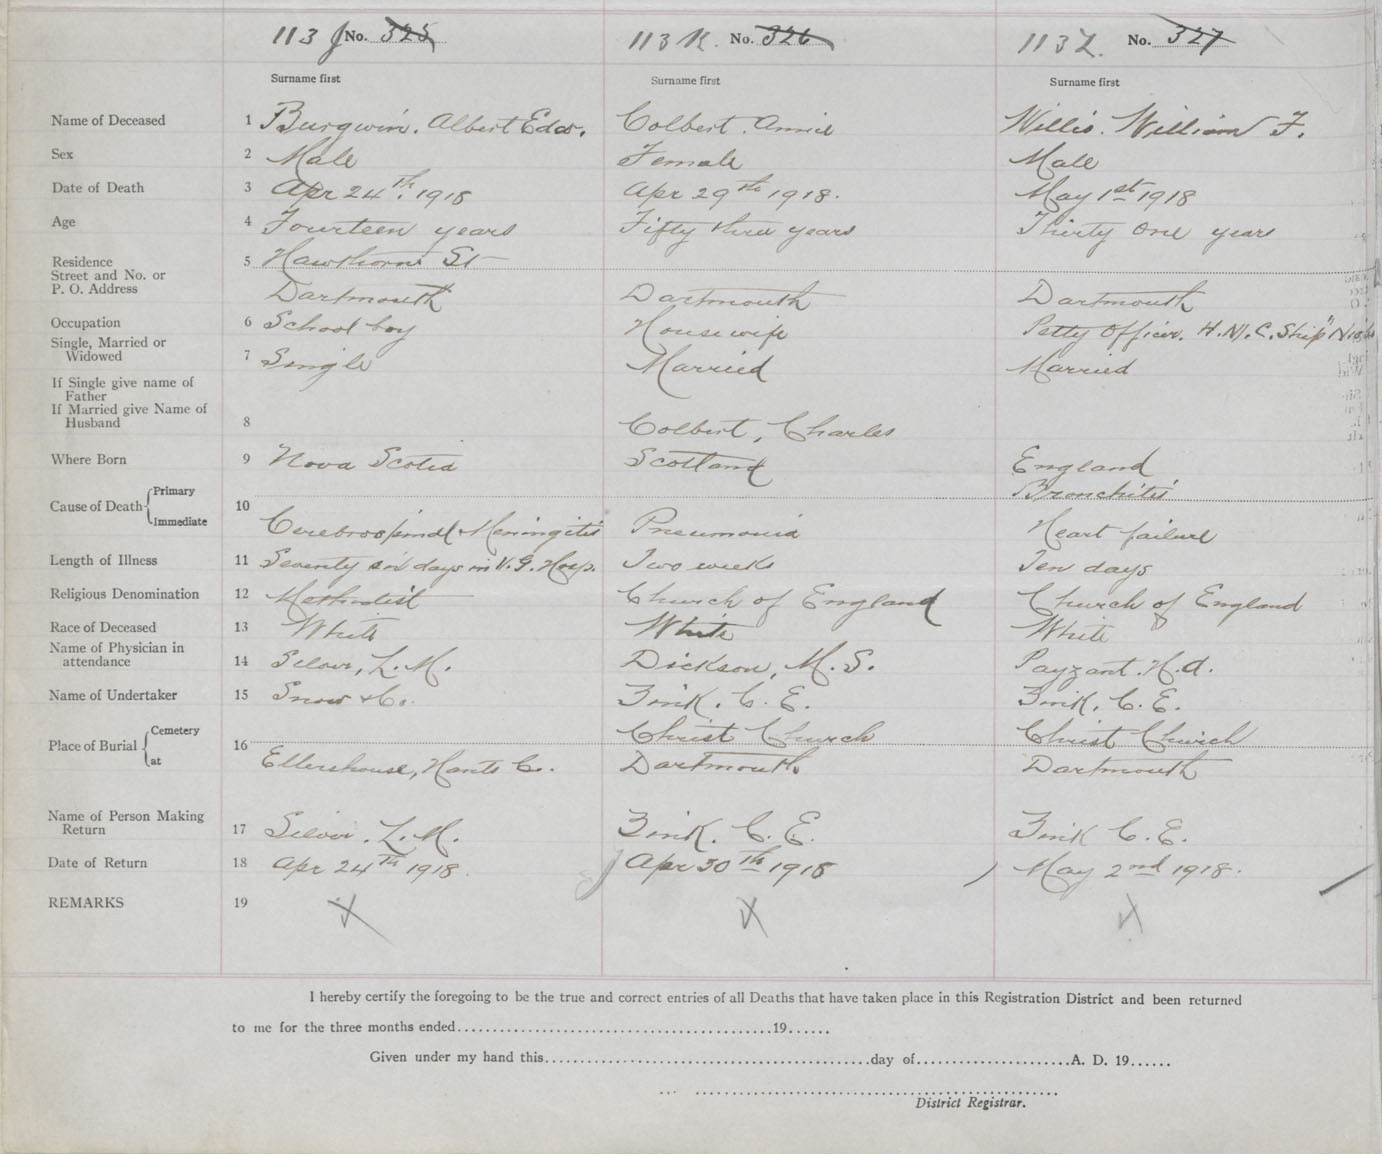 113 J No. 325 113 K. No. 326 113 L. No. 327
Surname first Surname first Surname first
Name of Deceased 1 Burgwin. Albert Edw. Colbert. Annie Willis. William F.
Sex 2 Male Female Male
Date of Death 3 Apr 24th. 1918 Apr 29th 1918. May 1st 1918
Age 4 Fourteen years Fifty three years Thirty One years
Residence 5 Hawthorne St
Street and No. or
P. O. Address Dartmouth Dartmouth Dartmouth
Occupation 6 School boy House wife Petty Officer. H.M.C. Ship "Niobe
Single, Married or
Widowed 7 Single Married Married
If Single give name of
Father
If Married give Name of
Husband 8 Colbert, Charles
Where Born 9 Nova Scotia Scotland England
Cause of Death Primary 10 Bronchitis
Immediate Cerebrospinal Meningitis Pneumonia Heart failure
Length of Illness 11 Seventy six days in V. G. Hosp. Two weeks Ten days
Religious Denomination 12 Methodist Church of England Church of England
Race of Deceased 13 White White White
Name of Physician in
attendance 14 Silver, L. M. Dickson, M. S. Payzant. H. A.
Name of Undertaker 15 Snow & Co. Zink. C. E. Zink. C. E.
Place of Burial Cemetery 16 Christ Church Christ Church
at Ellershouse, Hants Co. Dartmouth Dartmouth
Name of Person Making
Return 17 Silver. L. M. Zink. C. E. Zink C. E.
Date of Return 18 Apr 24th 1918. Apr 30th 1918 May 2nd 1918.
REMARKS 19
I hereby certify the foregoing to be the true and correct entries of all Deaths that have taken place in this Registration District and been returned
to me for the three months ended 19
Given under my hand this day of A. D. 19
District Registrar.